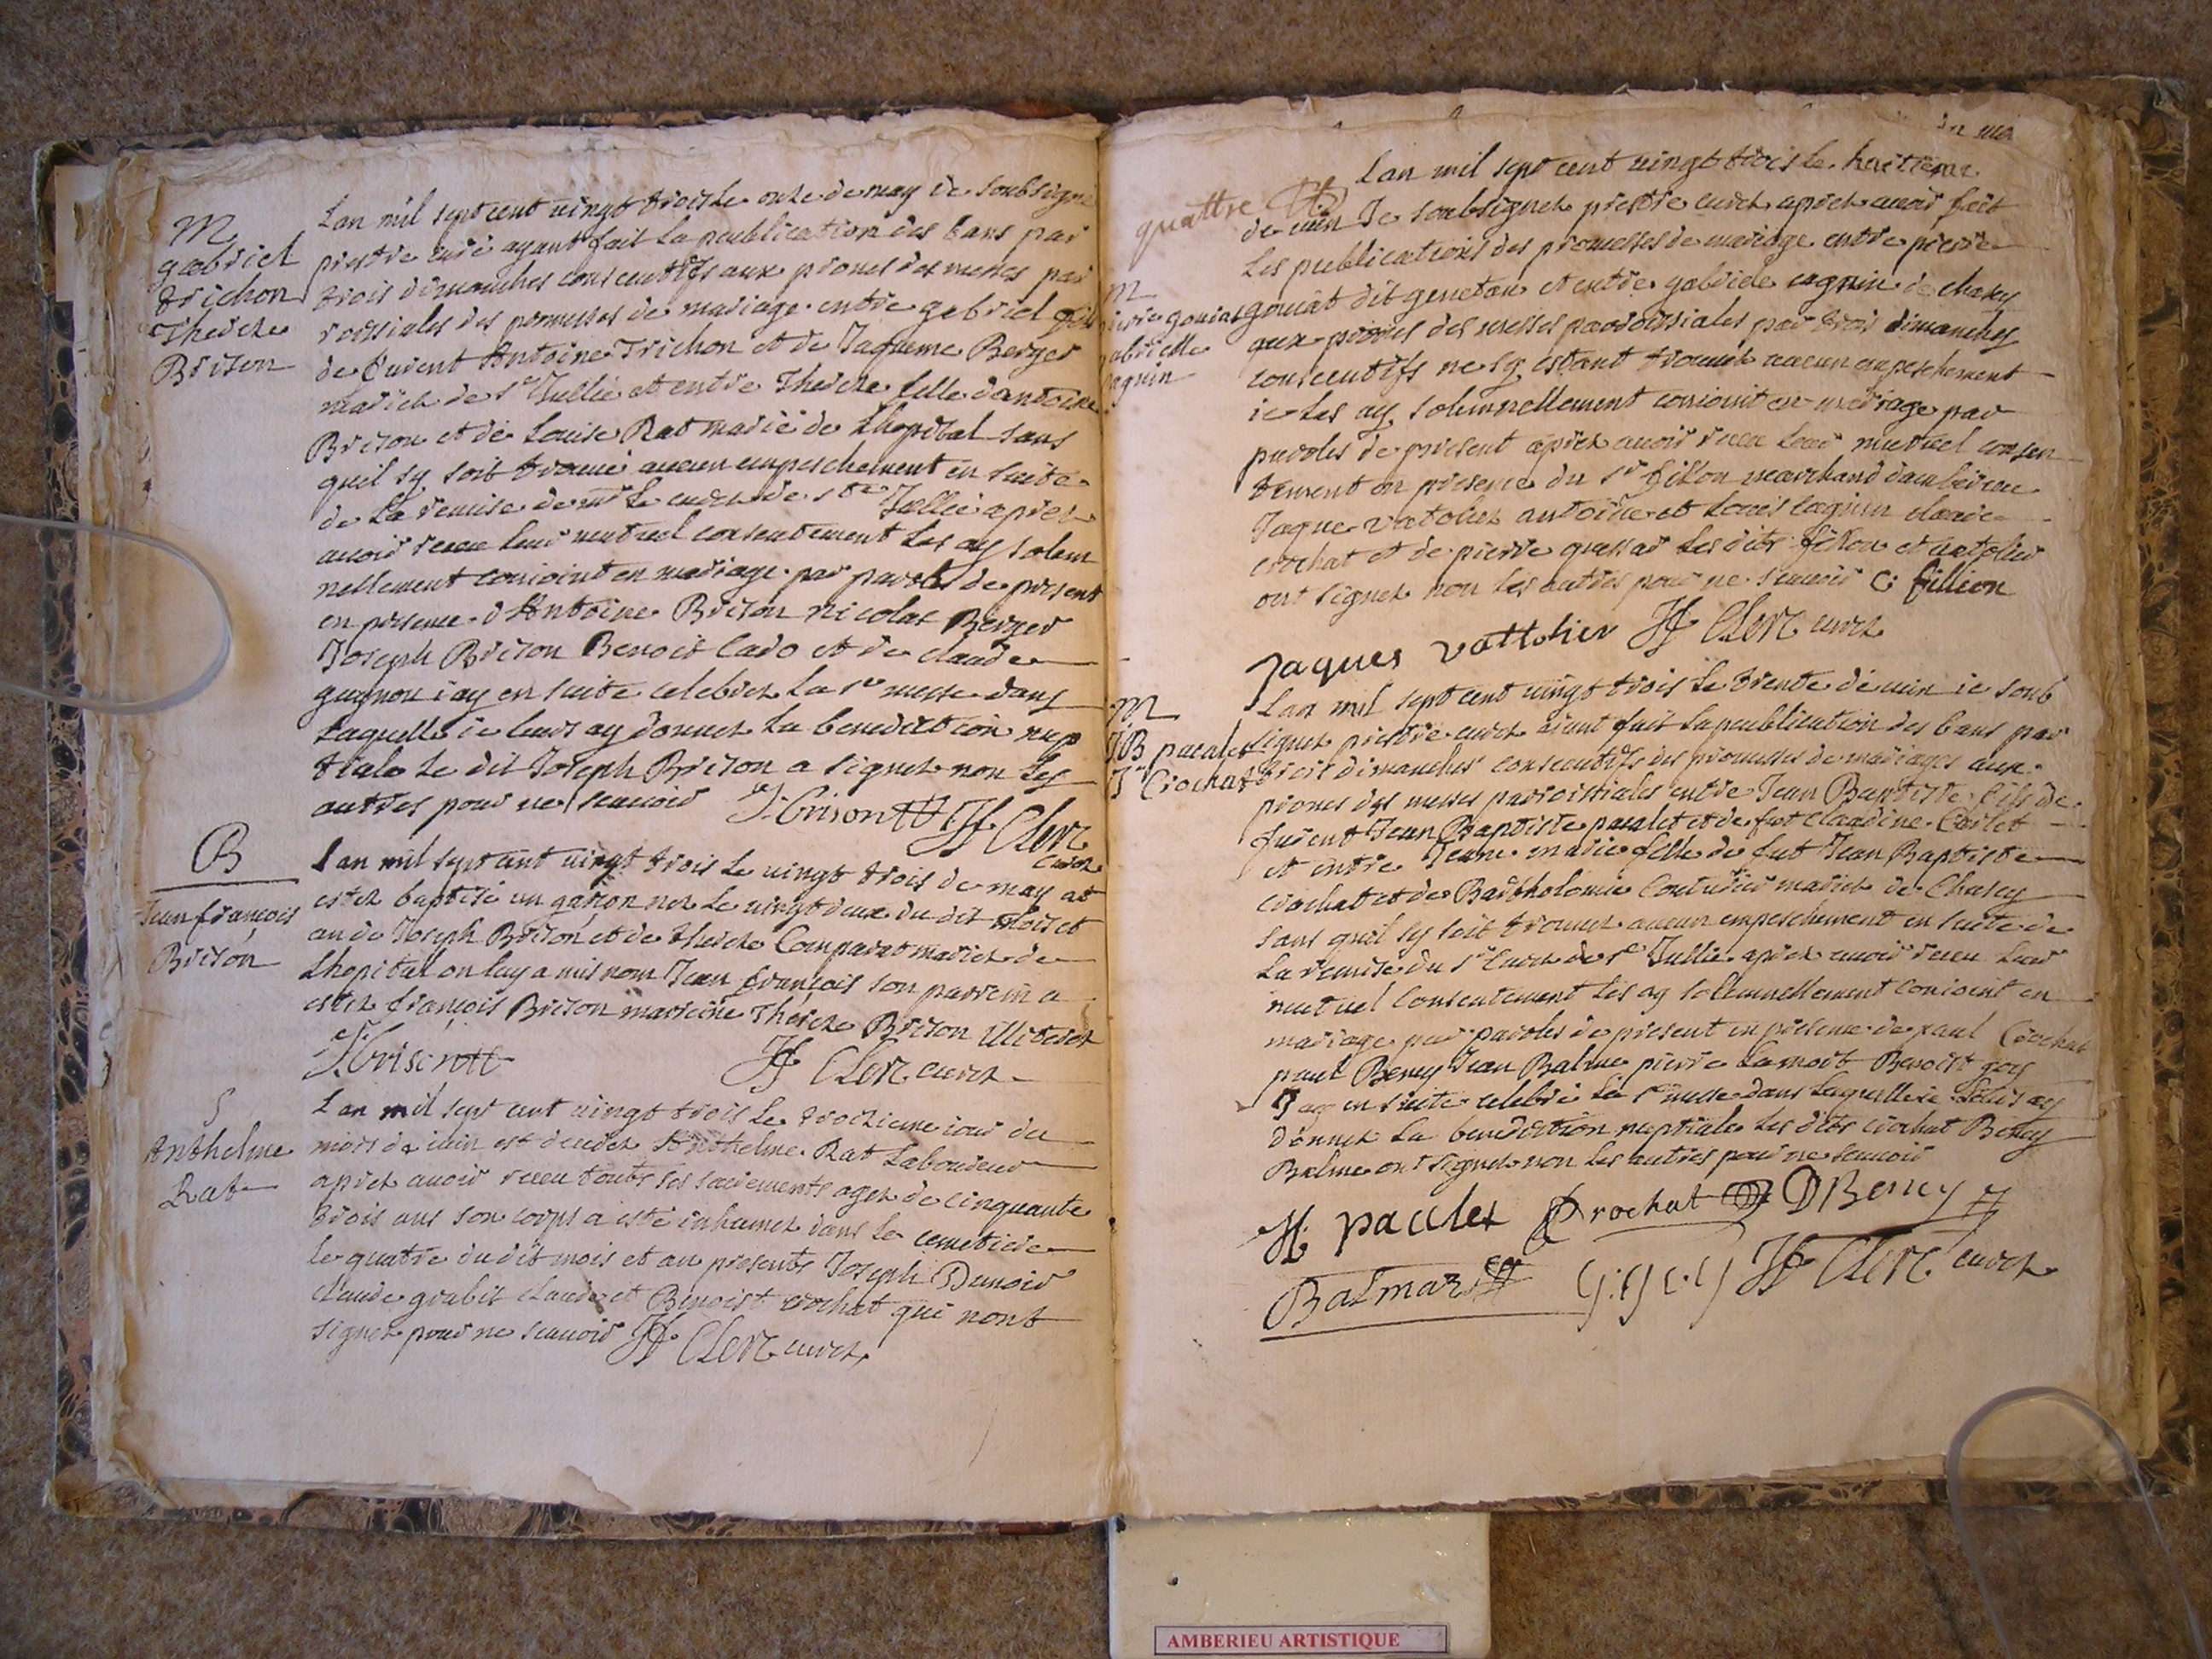 M
gabriel
trichon
Thereze
Brison
Lan mil sept cent vingt trois le onze de may ie soubsigné
prestre curé ayant fait la publication des bans par
trois dimanches consecutifs aux prones des messes par
roissiales des promesses de mariage entre gabriel fils
de furent Antoine Trichon et de Jaqueme Berger
mariez de st Jullie et entre Thereze fille dantoine
Brison et de Louise Rat marié de Lhopital sans
quil sy soit trouué aucun empeschement en suite
de La remise de mr le curez de ste Jullie aprez
auoir receu leur mutuel consentement Les ay solem
nellement conioint en mariage par paroles de present
en presence d'Antoine Brison nicolas Berger
Joseph Brison Benoit Cado et de claude
gagnon i ay en suite celebrez La ste messe dans
Laquelle ie leurs ay donnez La benediction nup
tiale Le dit Joseph Brison a signez non Les
autres pour ne scauoir J. Brison JF Clerc
curez
B
Jean françois
Brison
Lan mil sept cent vingt trois Le vingt trois de may at
estez baptisé un garson nez Le vingt deux du dit mois et
an de Joseph Brison et de thereze Comparat mariez de
Lhopital on luy a mis nom Jean françois son parrein a
estez françois Brison marreine Thereze Brison illiterez
J. brison JF Clerc curez
S
Anthelme
Rat
Lan mil sept cent vingt trois Le troizieme iour du
mois de iuin est decedez Anthelme Rat Laboureur
aprez auoir receu touts ses sacrements agez de cinquante
trois ans son corps a esté inhumez dans Le cemetiere
le quatre du dit mois et an presents Joseph Dunoir
claude grabit claude et Benoist crochat qui nont
signez pour ne scauoir JF Clerc curez
quattre
M
pierre gouiat
gabrielle
cagnin
Lan mil sept cent vingt trois Le huitieme
de iuin Je soubsignez prestre curez aprez auoir fait
Les publications des promesses de mariage entre pierre
gouiat dit genetan et entre gabriele cagnin de chasey
aux prones des messes parroissiales par trois dimanches
consecutifs ne sy estant trouuez aucun empeschement
ie Les ay solemnellement conioint en mariage par
paroles de present aprez auoir receu Leur mutuel consen
tement en presence du sr fillion marchand dambérieu
Jaque vatolier antoine et Louis cagnin claude
crochat et de pierre quessar Les dits fillion et vatolier
ont signez non Les autres pour ne scauoir C: fillion
Jaques vattolier JF Clerc curez
M
JB pacalet
Jne Crochat
Lan mil sept cent vingt trois Le trente de iuin ie soub
signez prestre curez aiant fait La publication des bans par
trois dimanches consecutifs des promesses de mariages aux
prones des messes parroissiales entre Jean Baptiste fils de
furent Jean Baptiste pacalet et de fut claudine Carlet
et entre Jeane marie fille de fut Jean Baptiste
crochat et de Bartholomie Couturier mariez de Chasey
sans quil sy soit trouuez aucun empeschement en suite de
La remise du sr Curez de ste Jullie aprez auoir receu Leur
mutuel consentement Les ay solemnellement conioint en
mariage par paroles de present en presence de paul Crochat
paul Berney Jean Balme pierre Lamort Benoist goy
J ay en suite celebré La ste messe dans Laquelle ie Leurs ay
donnez La benediction nuptiale Les dits crochat Berney
Balme ont signez non Les autres pour ne scauoir
pacalet P crochat D Berney
Balmaz JF Clerc curez
AMBERIEU ARTISTIQUE